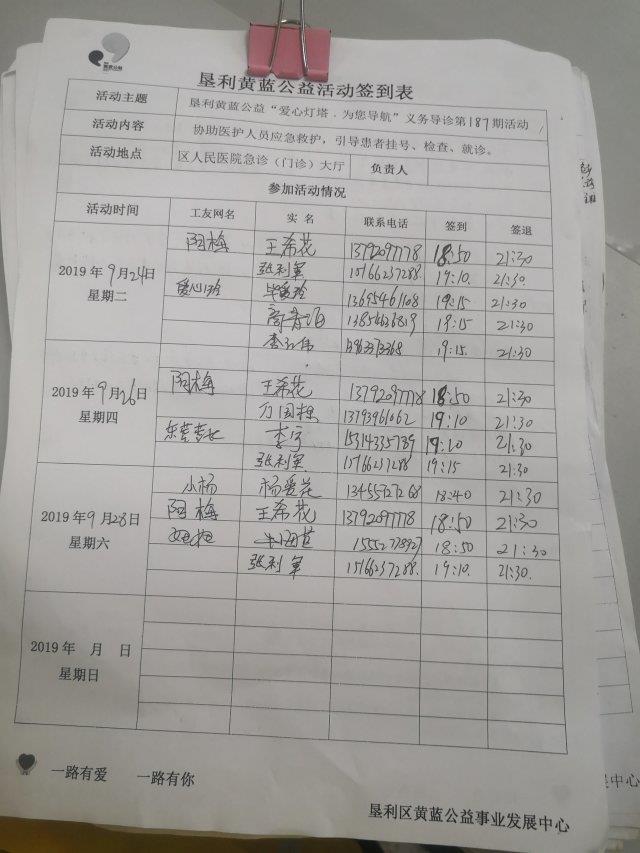 垦利黄蓝公益活动签到表
活动主题 垦利黄蓝公益“爱心灯塔﹒为您导航”义务导诊第187期活动
活动内容 协助医护人员应急救护，引导患者挂号、检查、就诊。
活动地点 区人民医院急诊（门诊）大厅 负责人
参加活动情况
活动时间 工友网名 实 名 联系电话 签到 签退
2019年9月24日 星期二
阿梅 王希花 13792097778 18:50 21:30
张利军 15166237288 19:10 21:30
爱心 毕爱玲 13655461108 19:15 21:30
13854636819 19:15 21:30
19:15. 21:30
2019年9月26日 星期四
阿梅 王希花 13792097778 18:50 21:30
万国 13793961062 19:10 21:30
李宁 15314335789 19:20 21:30
张利军 15166237288 19:15 21:30
2019年9月28日 星期六
小杨 杨爱花 13455727268 18:40 21:30
阿梅 王希花 13792097778 18:50 21:30
15552778927 18:50 21:30
张利军 15166237288. 19:10. 21:30.
2019年 月 日
星期日
一路有爱 一路有你
垦利区黄蓝公益事业发展中心
展中心